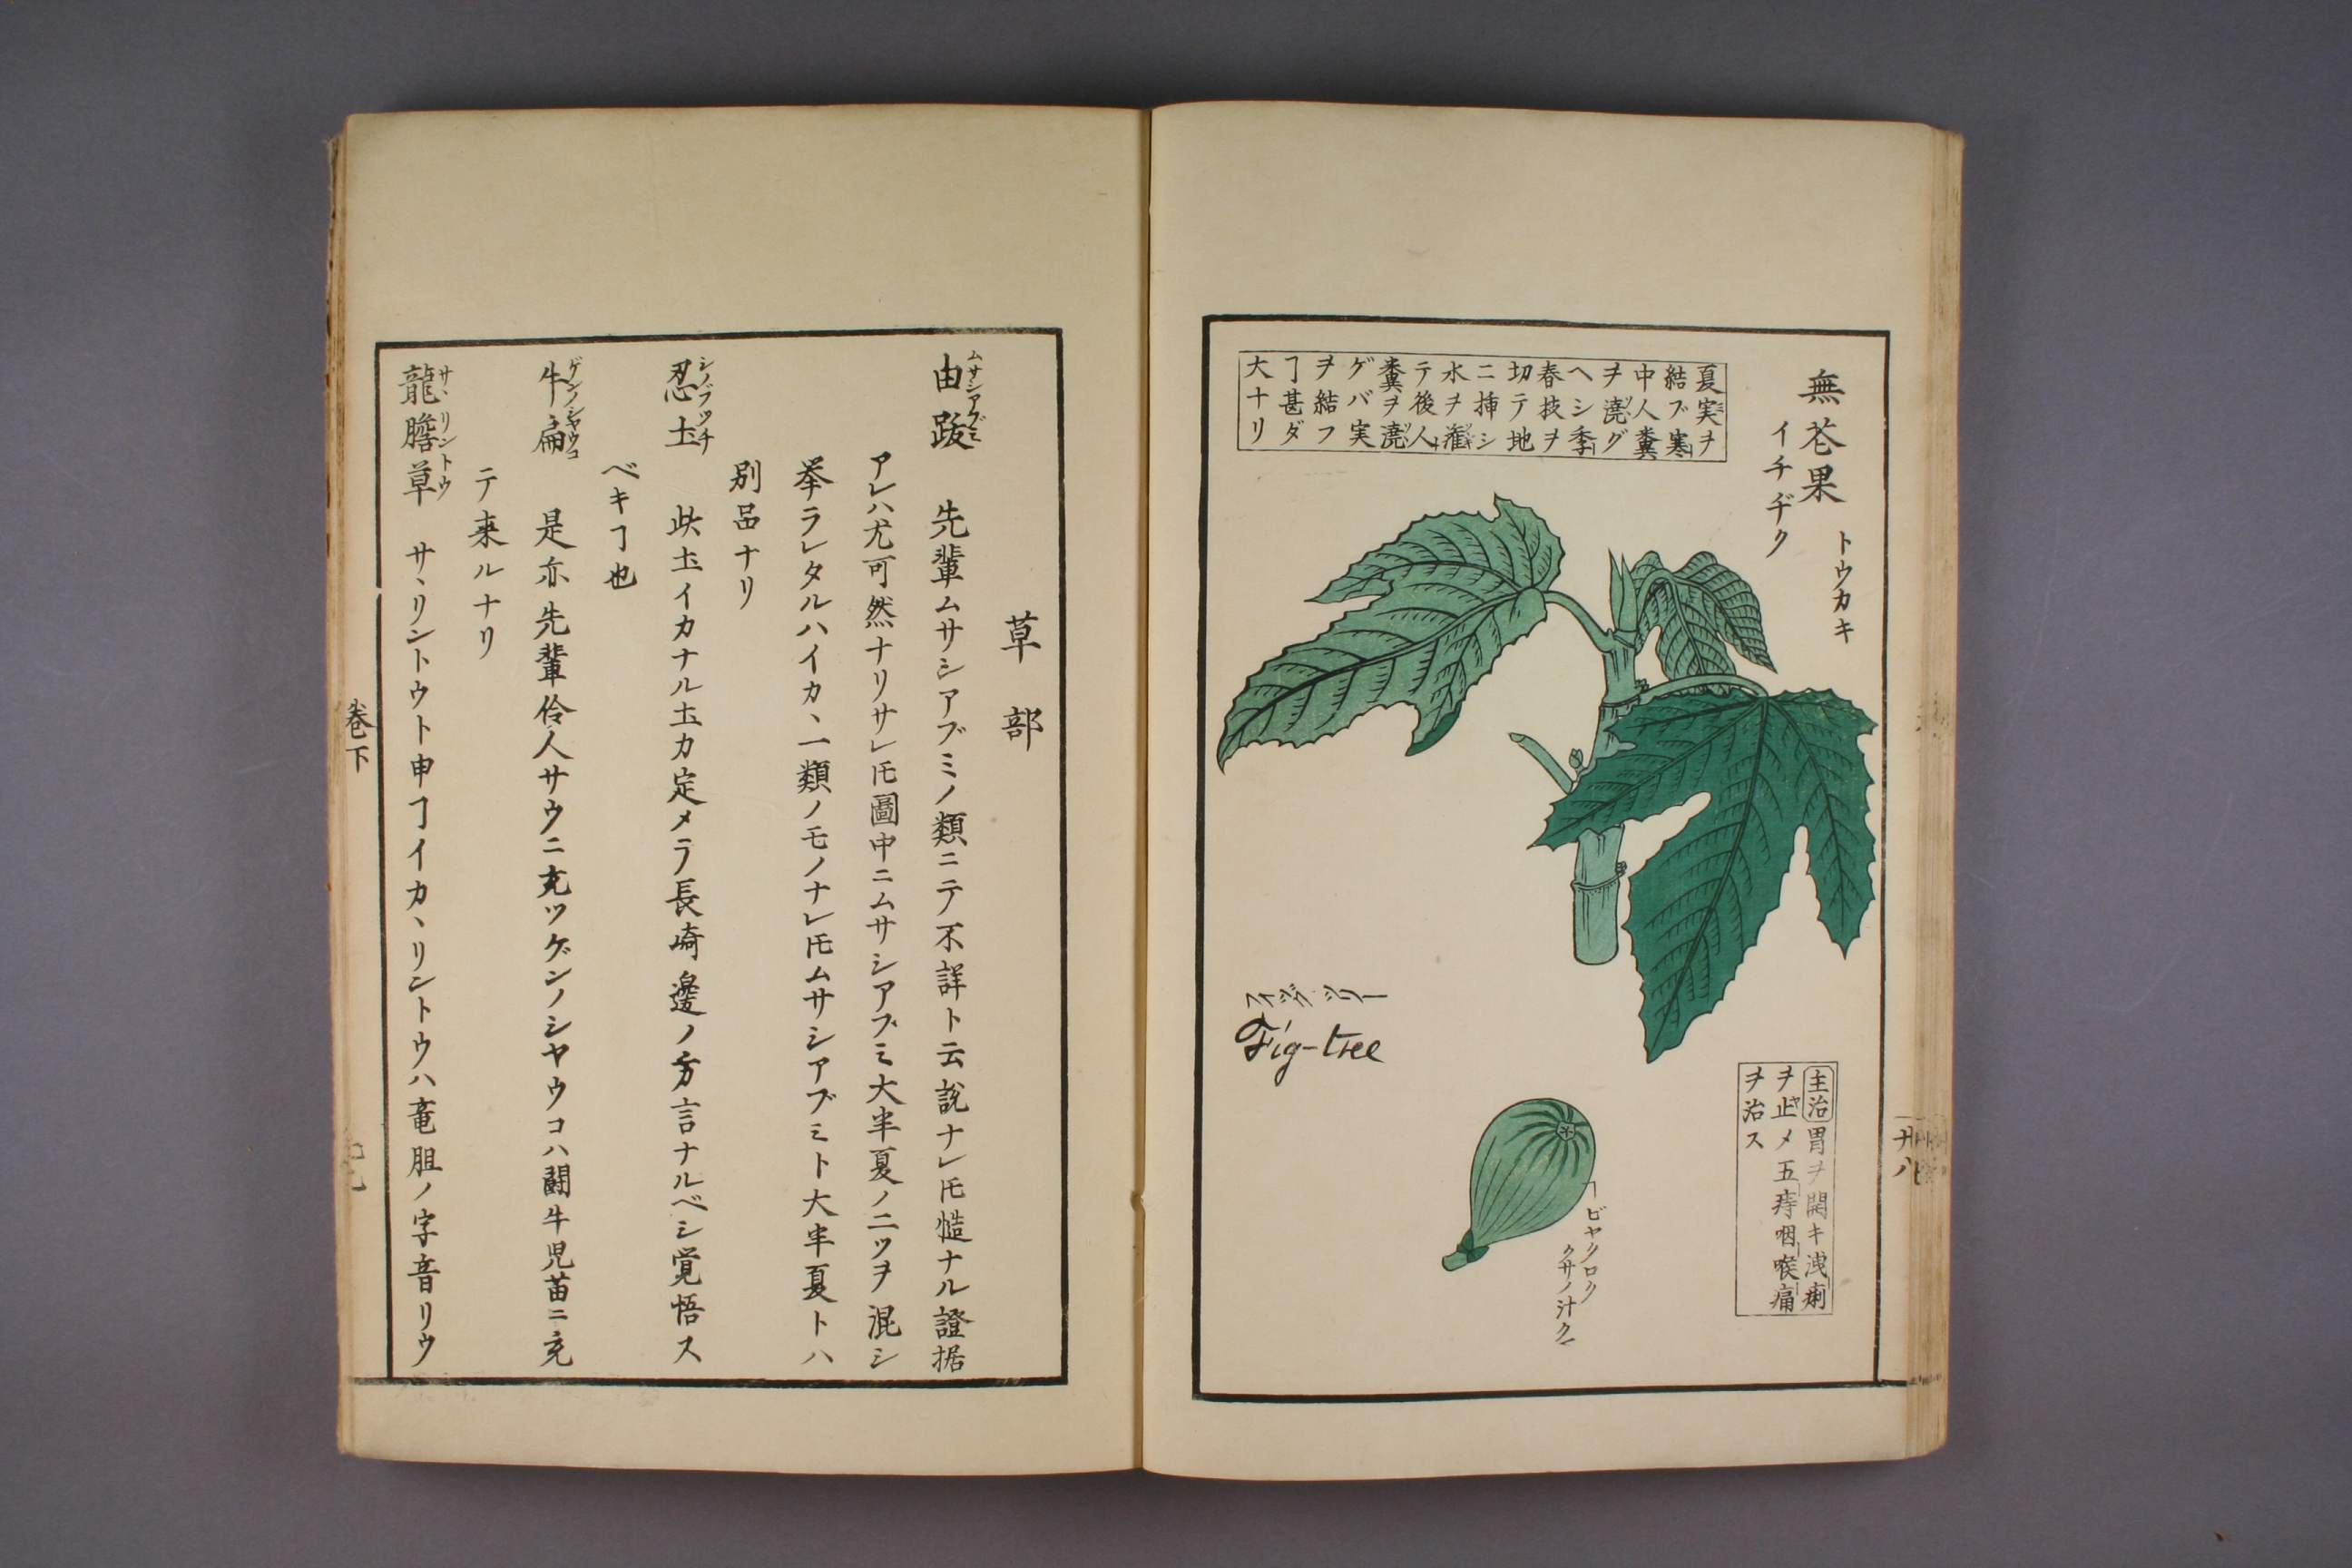 無花果
イチヂク
トウカキ
夏実ヲ
結ブ寒
中人糞
ヲ澆グ
ヘシ季
春技ヲ
切テ地
ニ挿シ
水ヲ潅
テ後人
糞ヲ澆
ゲバ実
ヲ結フ
ヿ甚ダ
大ナリ
フヰグ ツリー
Fig-tree
主治 胃ヲ開キ洩痢
ヲ止メ五痔咽喉痛
ヲ治ス
ビヤクロク
クサノ汁
廾八
草部
由跋 ムサシアブミ 先輩ムサシアブミノ類ニテ不詳ト云説ナレ𪜈慥ナル證据
アレハ尤可然ナリサレ𪜈圖中ニムサシアブミ大半夏ノ二ツヲ混シ
挙ラレタルハイカヽ一類ノモノナレ𪜈ムサシアブミト大半夏トハ
別品ナリ
忍土 シノブツチ 此土イカナル土カ定メラ長崎邊ノ方言ナルベシ覚悟ス
ベキヿ也
牛扁 ゲンノシヤウコ 是亦先輩伶人サウニ充ツゲンノシヤウコハ闘牛児苗ニ充
テ来ルナリ
龍膽草 サヽリントウ サヽリントウト申ヿイカヽリントウハ竜胆ノ字音リウ
巻下